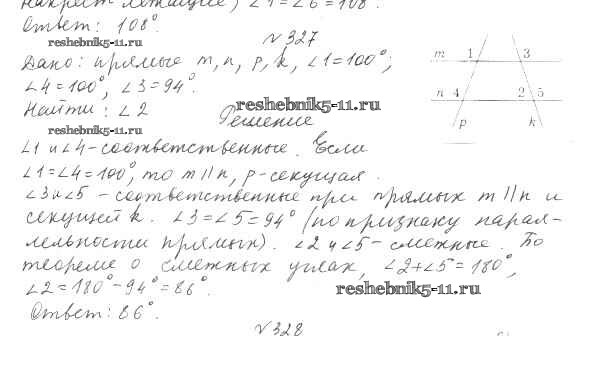 накрест лежащие) ∠1 = ∠6 = 108°.
Ответ: 108°.
reshebnik5-11.ru
№327
Дано: прямые m, n, p, k, ∠1 = 100°;
∠4 = 100°, ∠3 = 94°.
Найти: ∠2
reshebnik5-11.ru
reshebnik5-11.ru
Решение
m 1 3
n 4 2 5
p k
∠1 и ∠4 - соответственные. Если
∠1 = ∠4 = 100°, то m || n, p - секущая.
∠3 и ∠5 - соответственные при прямых m || n и
секущей k. ∠3 = ∠5 = 94° (по признаку парал-
лельности прямых). ∠2 и ∠5 - смежные. По
теореме о смежных углах, ∠2 + ∠5 = 180°,
∠2 = 180° - 94° = 86°.
reshebnik5-11.ru
Ответ: 86°.
№328